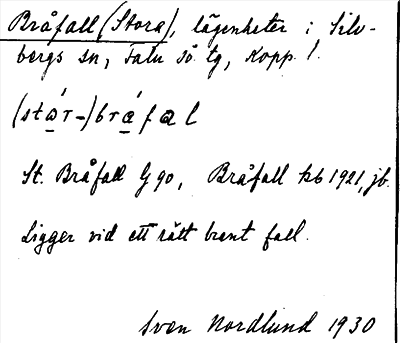 Bråfall (Stora), lägenheter i Silv-
bergs sn, Falu sö. tg, Kopp. l.
(stɷ́r-)bráfal
St. Bråfall G 90, Bråfall kb 1921, jb.
Ligger vid ett rätt brant fall.
Sven Nordlund 1930